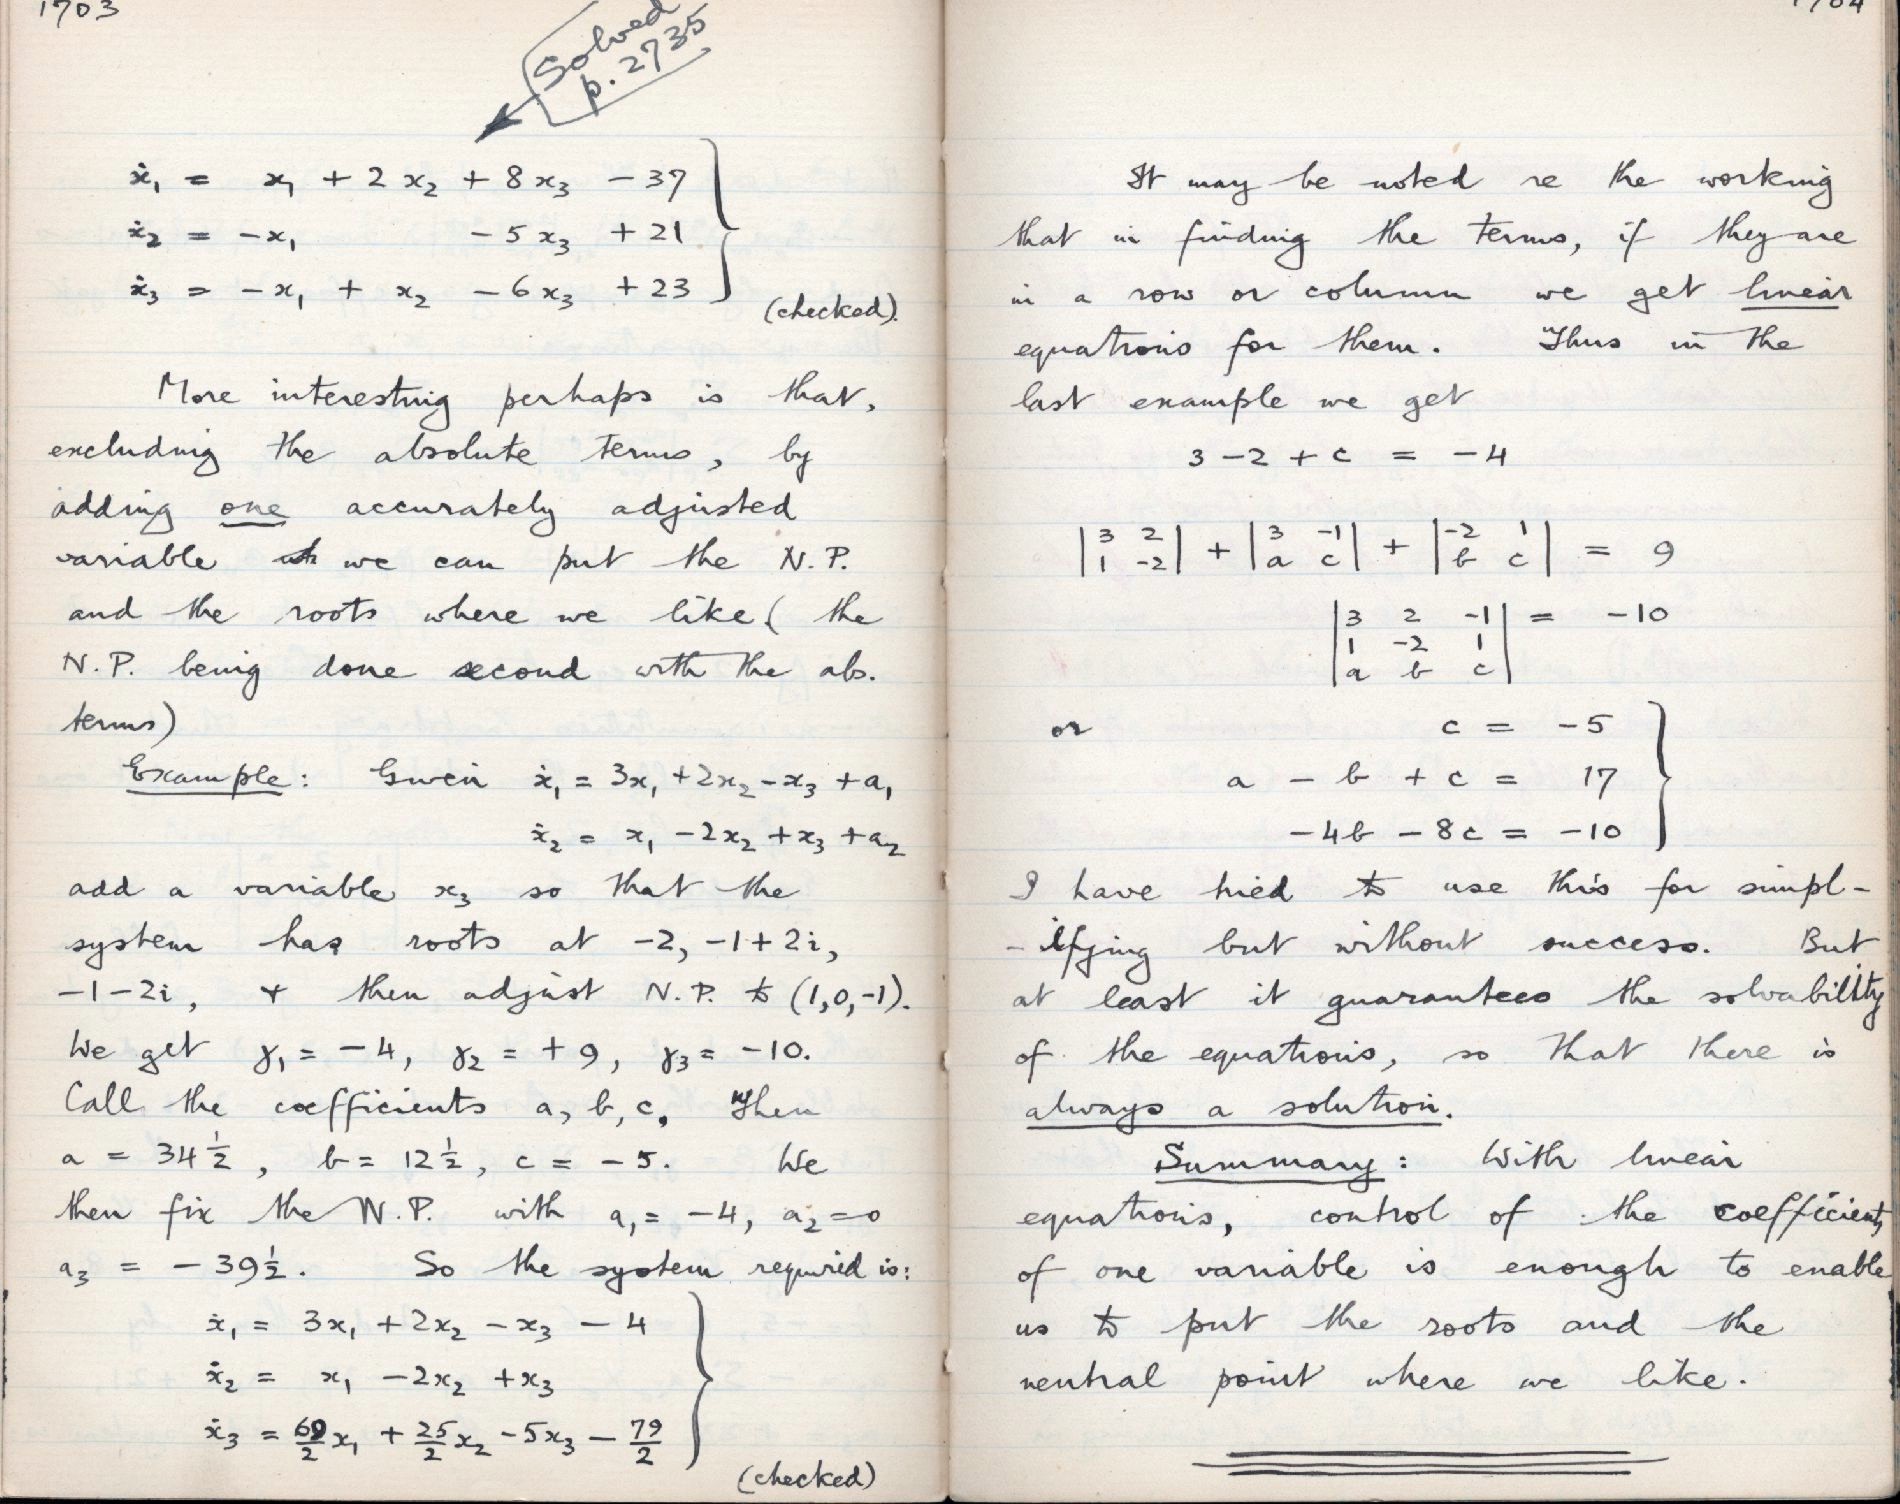 1703
Solved
p. 2735
ẋ₁ = x₁ + 2x₂ + 8x₃ - 37
ẋ₂ = -x₁ - 5x₃ + 21
ẋ₃ = -x₁ + x₂ - 6x₃ + 23
(checked).
More interesting perhaps is that,
excluding the absolute terms, by
adding one accurately adjusted
variable we can put the N.P.
and the roots where we like (the
N.P. being done second with the abs.
terms)
Example: Given ẋ₁ = 3x₁ + 2x₂ - x₃ + a₁
ẋ₂ = x₁ - 2x₂ + x₃ + a₂
add a variable x₃ so that the
system has roots at -2, -1+2i,
-1-2i, & then adjust N.P. to (1,0,-1).
We get γ₁ = -4, γ₂ = +9, γ₃ = -10.
Call the coefficients a, b, c. Then
a = 34½, b = 12½, c = -5. We
then fix the N.P. with a₁ = -4, a₂ = 0
a₃ = -39½. So the system required is:
ẋ₁ = 3x₁ + 2x₂ - x₃ - 4
ẋ₂ = x₁ - 2x₂ + x₃
ẋ₃ = 69/2 x₁ + 25/2 x₂ - 5x₃ - 79/2
(checked)
1704
It may be noted re the working
that in finding the terms, if they are
in a row or column we get linear
equations for them. Thus in the
last example we get
3 - 2 + c = -4
|3 2| + |3 -1| + |-2 1| = 9
|1 -2| |a c| |b c|
|3 2 -1| = -10
|1 -2 1|
|a b c|
or c = -5
a - b + c = 17
-4b - 8c = -10
I have tried to use this for simpl-
-ifying but without success. But
at least it guarantees the solvability
of the equations, so that there is
always a solution.
Summary: With linear
equations, control of the coefficients
of one variable is enough to enable
us to put the roots and the
neutral point where we like.